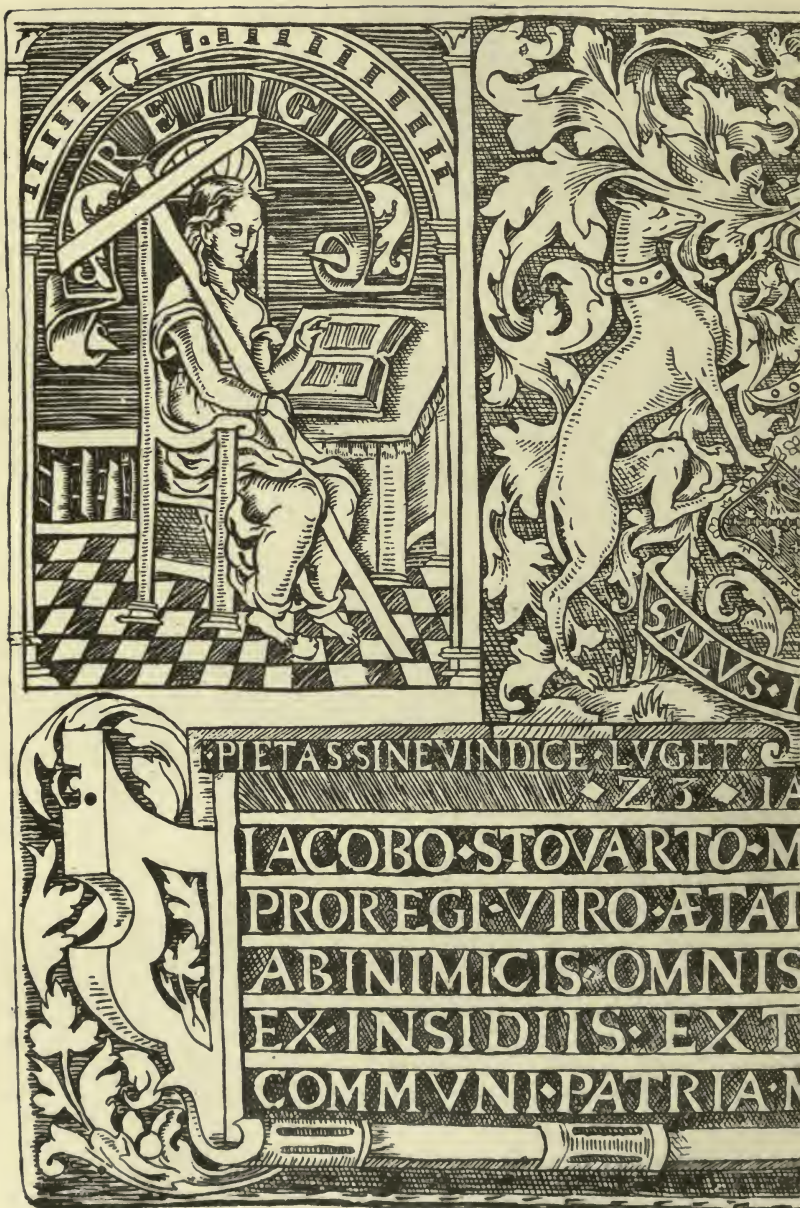 RELIGIO
SALVS · I
PIETAS SINE VINDICE · LVGET ·
· Z 3 · IA
IACOBO · STOVARTO · M
PROREGI · VIRO · ÆTAT
AB INIMICIS · OMNIS
EX · INSIDIIS · EX T
COMMVNI · PATRIA · M